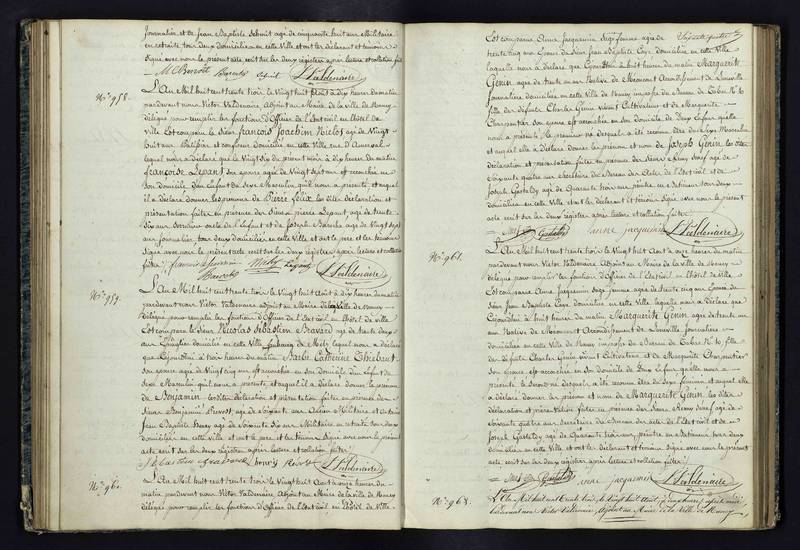 Journalier et de Jean Baptiste Schmit agé de cinquante huit ans Militaire
en retraite tous deux domiciliés en cette Ville et ont les déclarant et témoins
signé avec nous le présent acte écrit sur les deux registres après lecture et collation faite
L. Valdenaire
N°. 958.
L'An Mil huit cent trente trois le vingt huit Août à dix heures du matin
pardevant nous Victor Valdenaire Adjoint au Maire de la Ville de Nancy
délégué pour remplir les fonctions d'Officier de l'Etat civil en l'hôtel de
Ville Est comparu le Sieur François Joachim Niclos agé de Vingt
huit ans
lequel nous a déclaré que le Vingt six du présent mois à dix heures du matin
Françoise Lepant son épouse agée de Vingt sept ans est accouchée en
son domicile d'un enfant du sexe Masculin qu'il nous a présenté, et auquel
il a déclaré donner les prénoms de Pierre Félix les dites déclaration et
présentation faites en présence des Sieurs Pierre Lepant, agé de trente
six ans oncle de l'enfant et de Joseph agé de Vingt sept
ans journalier, tous deux domiciliés en cette ville et ont le père et les témoins
signé avec nous le présent acte écrit sur les deux registres après lecture et collation
faite
L. Valdenaire
N°. 959.
L'An Mil huit cent trente trois le Vingt huit Août à dix heures du matin
pardevant nous Victor Valdenaire adjoint au Maire de la Ville de Nancy
délégué pour remplir les fonctions d'Officier de l'Etat civil en l'hôtel de ville
Est comparu le Sieur Nicolas Sébastien Bravard agé de trente deux
ans domicilié en cette Ville faubourg de Metz lequel nous a déclaré
que Cejourd'hui à trois heures du matin Barbe Catherine Thiébaut
son épouse agée de Vingt cinq ans est accouchée en son domicile d'un Enfant du
sexe Masculin qu'il nous a présenté et auquel il a déclaré donner le prénom
de Benjamin les dites déclaration et présentation faites en présence des
Sieurs Benjamin Prevost agé de soixante ans et de
Jean Baptiste Henry agé de soixante six ans Militaire en retraite tous deux
domiciliés en cette ville et ont le père et les témoins Signé avec nous le présent
acte écrit sur les deux registres après lecture et collation faites
Sebastien Bravard henry L. Valdenaire
N°. 960.
L'An Mil huit cent trente trois le Vingt huit Août à onze heures du
matin pardevant nous Victor Valdenaire Adjoint au Maire de la ville de Nancy
délégué pour remplir les fonctions d'Officier de l'Etat civil en l'hôtel de Ville
Est comparue Anne Jacquemin Sage femme agée de
trente cinq ans Epouse du Sieur Jean Baptiste domiciliée en cette Ville
laquelle nous a déclaré que Cejourd'hui à huit heures du matin Marguerite
Genin, agée de trente un ans Native de Moncourt Arrondissement de Lunéville
Journalière domiciliée en cette Ville de Nancy N° 10 fille
de défunts Charles Genin vivant Cultivateur et de Marguerite
Charpentier son épouse est accouchée en son domicile de Deux Enfans qu'elle
nous a présenté le premier né desquels a été reconnu être du Sexe Masculin
et auquel elle a déclaré donner les prénom et nom de Joseph Genin, les dites
déclaration et présentation faites en présence des Sieurs Remy Merf agé de
soixante quatre ans secrétaire du Bureau des actes de l'Etat civil et de
Joseph Gastaldy agé de Quarante trois ans peintre, en cette Ville tous deux
domiciliés en cette Ville et ont les déclarant et témoins Signé avec nous le présent
acte écrit sur les deux registres après lecture et collation faites
Merf Gastaldy anne jacquemin L. Valdenaire
N°. 961.
L'An Mil huit cent trente trois le Vingt huit Août à onze heures du matin
pardevant nous Victor Valdenaire Adjoint au Maire de la ville de Nancy
délégué pour remplir les fonctions d'Officier de l'Etat civil en l'hôtel de Ville
Est comparue Anne Jacquemin sage femme agée de trente cinq ans Epouse du
Sieur Jean Baptiste domiciliée en cette ville laquelle nous a déclaré que
Cejourd'hui à huit heures du matin Marguerite Genin agée de trente un
ans Native de Moncourt Arrondissement de Lunéville Journalière
domiciliée en cette Ville de Nancy N° 10 fille
de défunts Charles Genin vivant Cultivateur et de Marguerite Charpentier
son Epouse est accouchée en son domicile de Deux Enfans qu'elle nous a
présenté le second né desquels a été reconnu être du sexe féminin et auquel elle
a déclaré donner les prénom et nom de Marguerite Genin, les dites
déclaration et présentation faites en présence des Sieurs Remy Merf agé de
soixante quatre ans secrétaire du Bureau des actes de l'Etat civil et de
Joseph Gastaldy agé de Quarante trois ans, peintre tous deux
domiciliés en cette Ville et ont les déclarant et témoins Signé avec nous le présent
acte écrit sur les deux registres après lecture et collation faites
Merf Gastaldy anne jacquemin L. Valdenaire
N°. 962.
L'An Mil huit cent trente trois, le Vingt huit Août,
pardevant nous Victor Valdenaire Adjoint au Maire de la Ville de Nancy